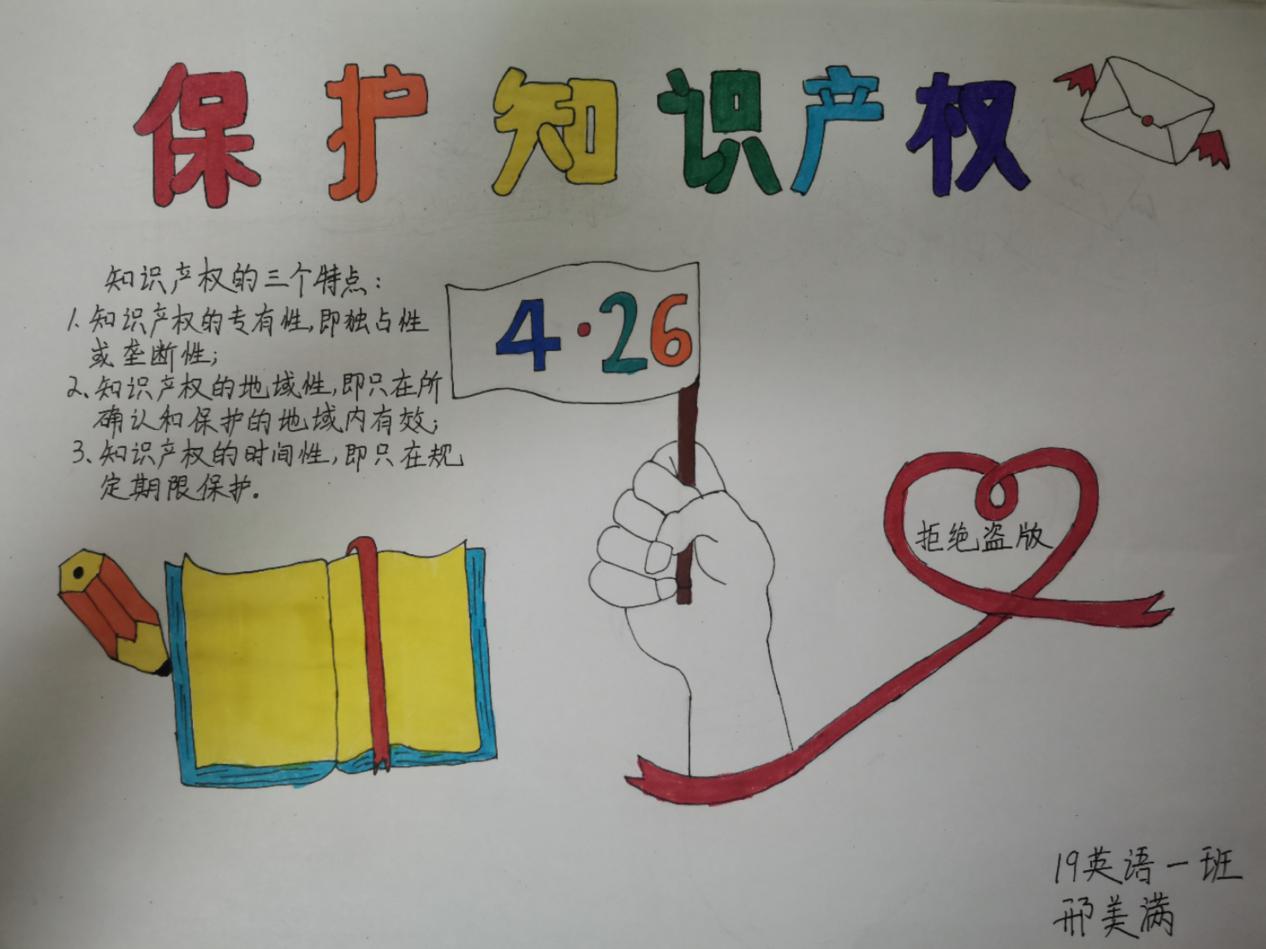 保护知识产权
知识产权的三个特点：
1.知识产权的专有性,即独占性
或垄断性;
2、知识产权的地域性,即只在所
确认和保护的地域内有效;
3、知识产权的时间性,即只在规
定期限保护。
4·26
拒绝盗版
19英语一班
邢美满